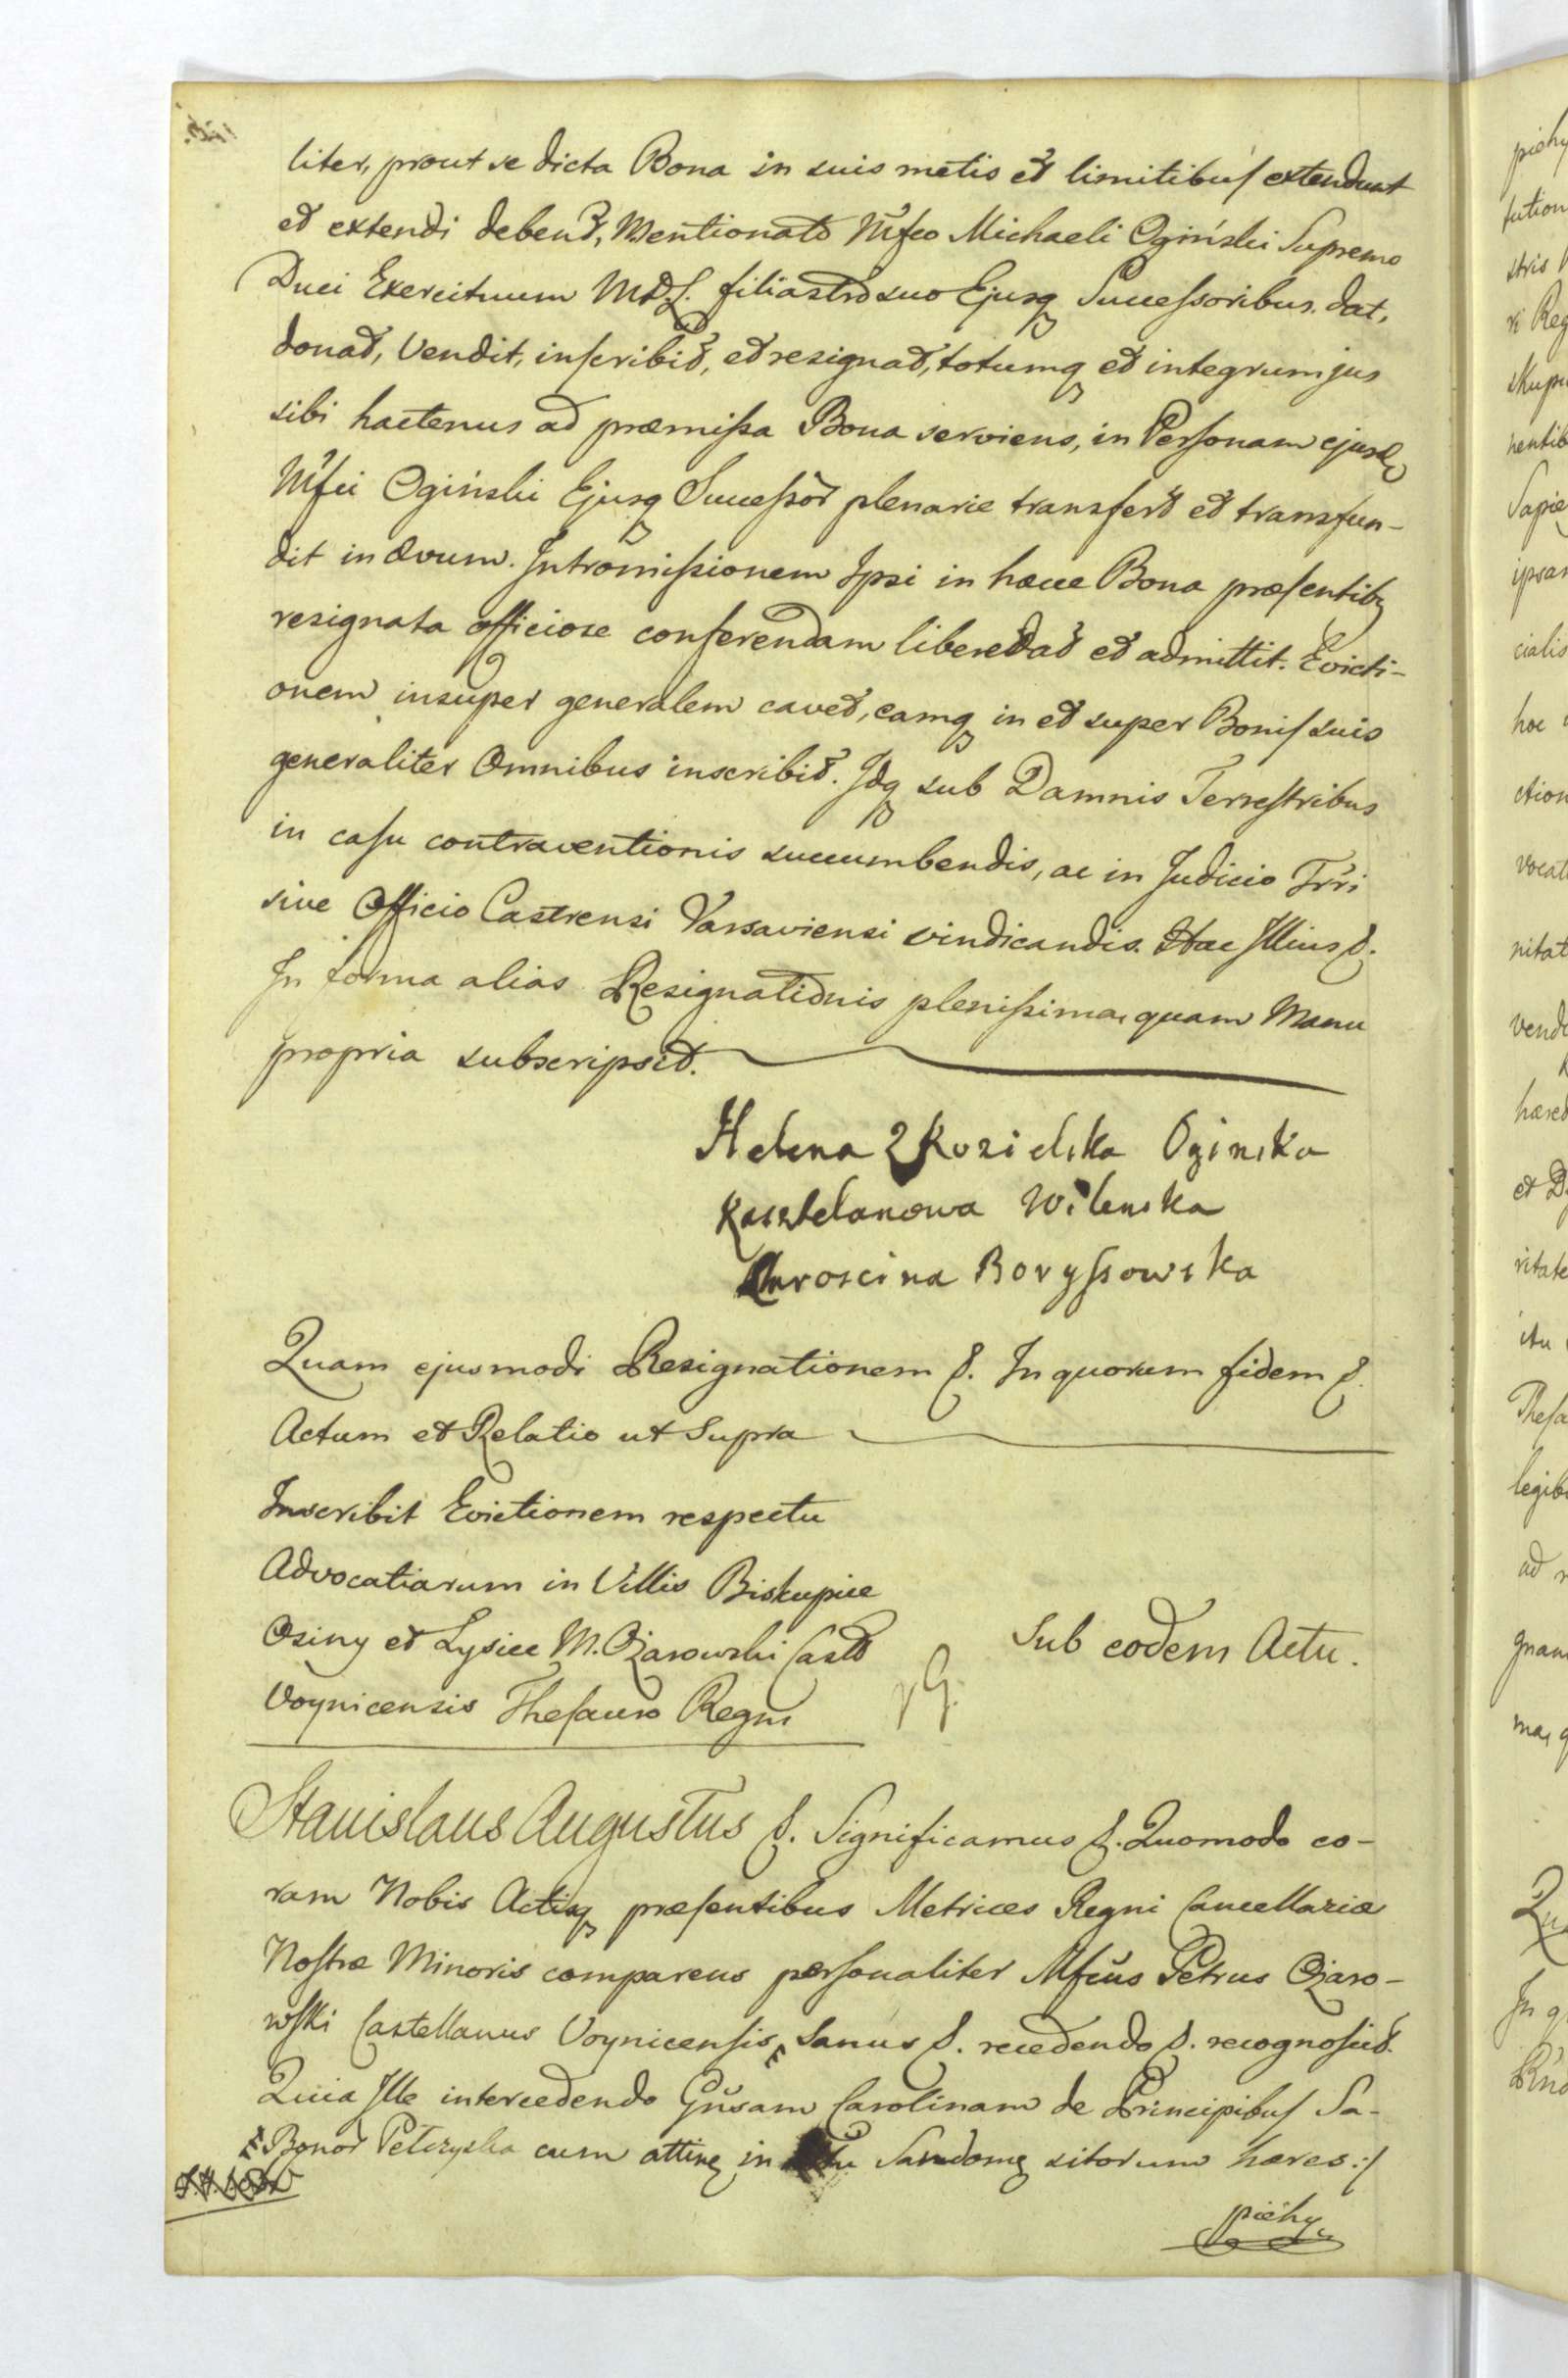 liter, prout se dicta Bona in suis metis et limitibus extendunt
et extendi debent, Mentionato Mfco Michaeli Ogiński Supremo
Duci Exercituum MDL. filiastro suo Ejusq Successoribus. dat,
donat, Vendit, inscribit, et resignat, totumq et integrum jus
sibi hactenus ad præmissa Bona serviens, in Personam ejusd
Mfci Ogiński Ejusq Successor plenarie transfert et transfun-
dit in ævum. Intromissionem Ipsi in hæcce Bona præsentibq
resignata officiose conferendam libere dat et admittit. Evicti-
onem insuper generalem cavet, eamq in et super Bonis suis
generaliter Omnibus inscribit. Idq sub Damnis Terrestribus
in casu contraventionis succumbendis, ac in Judicio Trri
sive Officio Castrensi Varsaviensi vindicandis. Hac Illius &.
In forma alias Resignationis plenissima, quam Manu
propria subscripsit.
Helena Z Kozielska Oginska
Kasztelanowa Wilenska
Boryssowska
Quam ejusmodi Resignationem &. In quorum fidem &.
Actum et Relatio ut Supra
Inscribit Evictionem respectu
Advocatiarum in Villis Biskupice
Osiny et Lysice M. Ożarowski Castel
Voynicensis Thesauro Regni
Sub eodem Actu.
Stanislaus Augustus &. Significamus &. Quomodo co-
ram Nobis Actisq præsentibus Metrices Regni Cancellariæ
Nostræ Minoris comparens personaliter Mfcus Petrus Ożaro-
wski Castellanus Voynicensis, Sanus &. recedendo &. recognoscit.
Quia Ille intercedendo Gnsam Carolinam de Principibus Sa-
Bonor Petczyska cum atting in Sandomq sitorum hæres :/
piehy